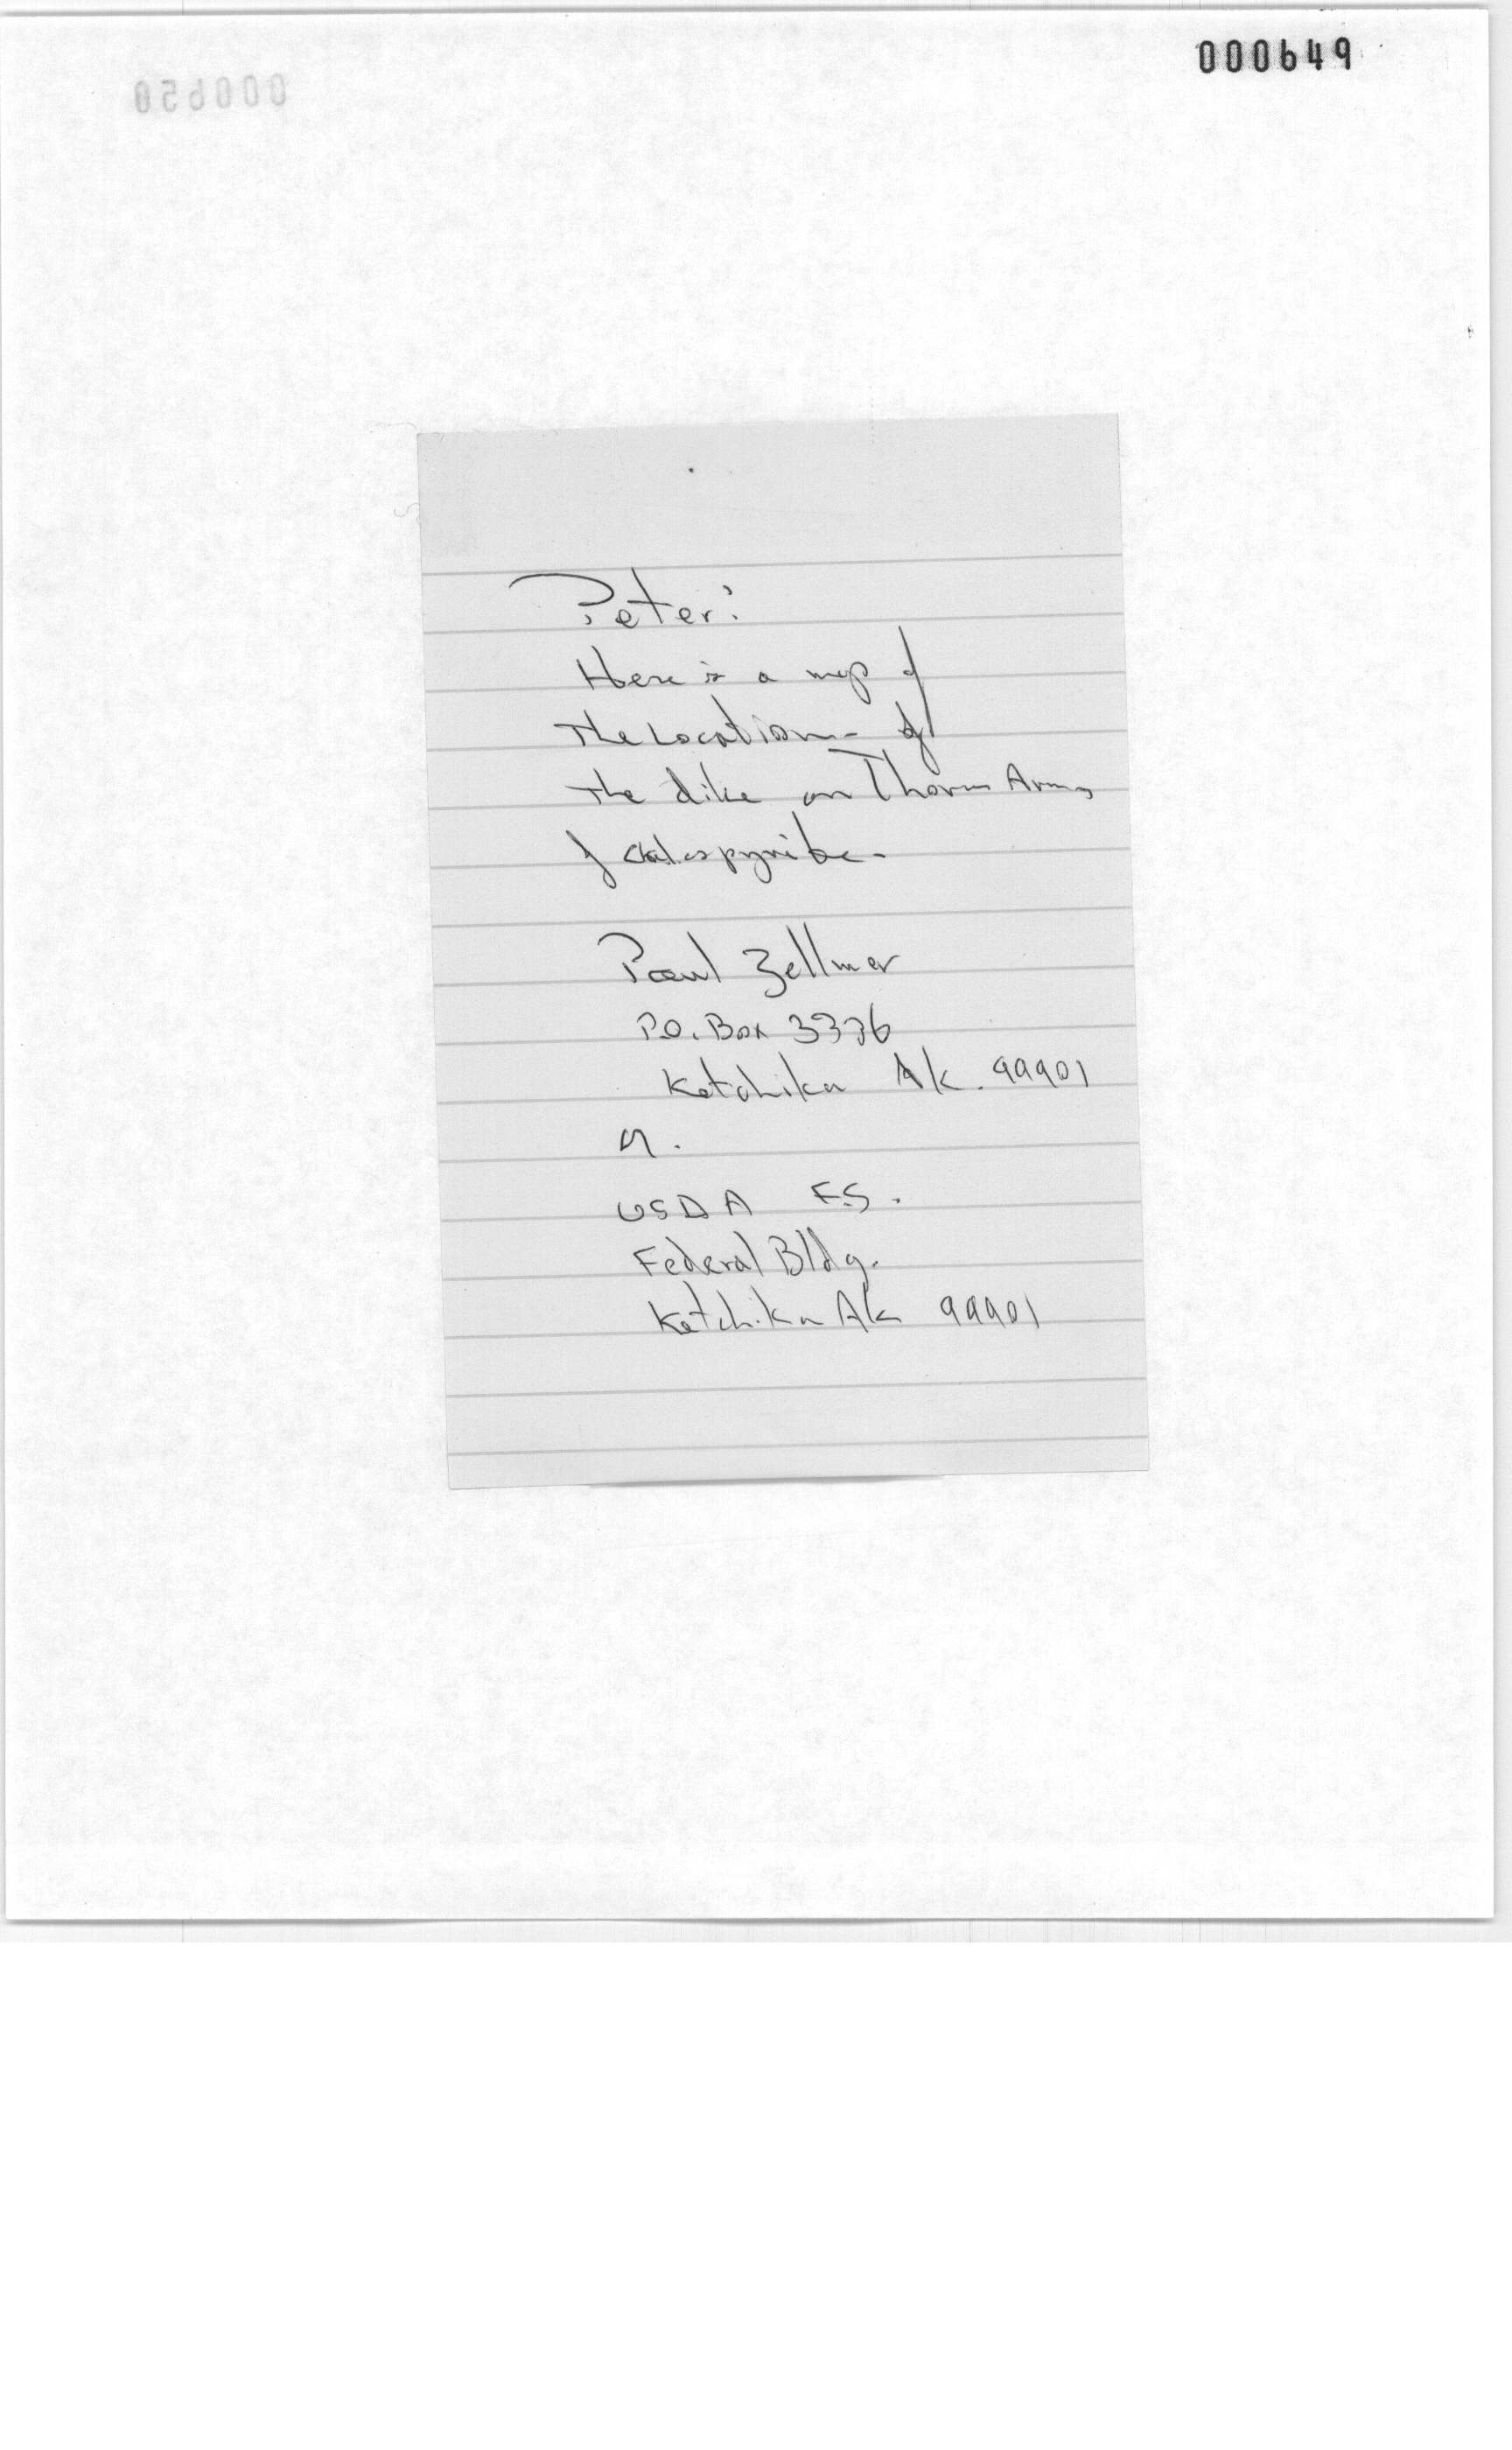 000649
000650
Peter:
Here is a map of
The Location - of
The dike on Thorne Arm,
of chalcopyrite.
Paul Zellmer
P.O. Box 3376
Ketchikan Ak. 99901
or.
USDA F.S.
Federal Bldg.
Ketchikan Ak 99901